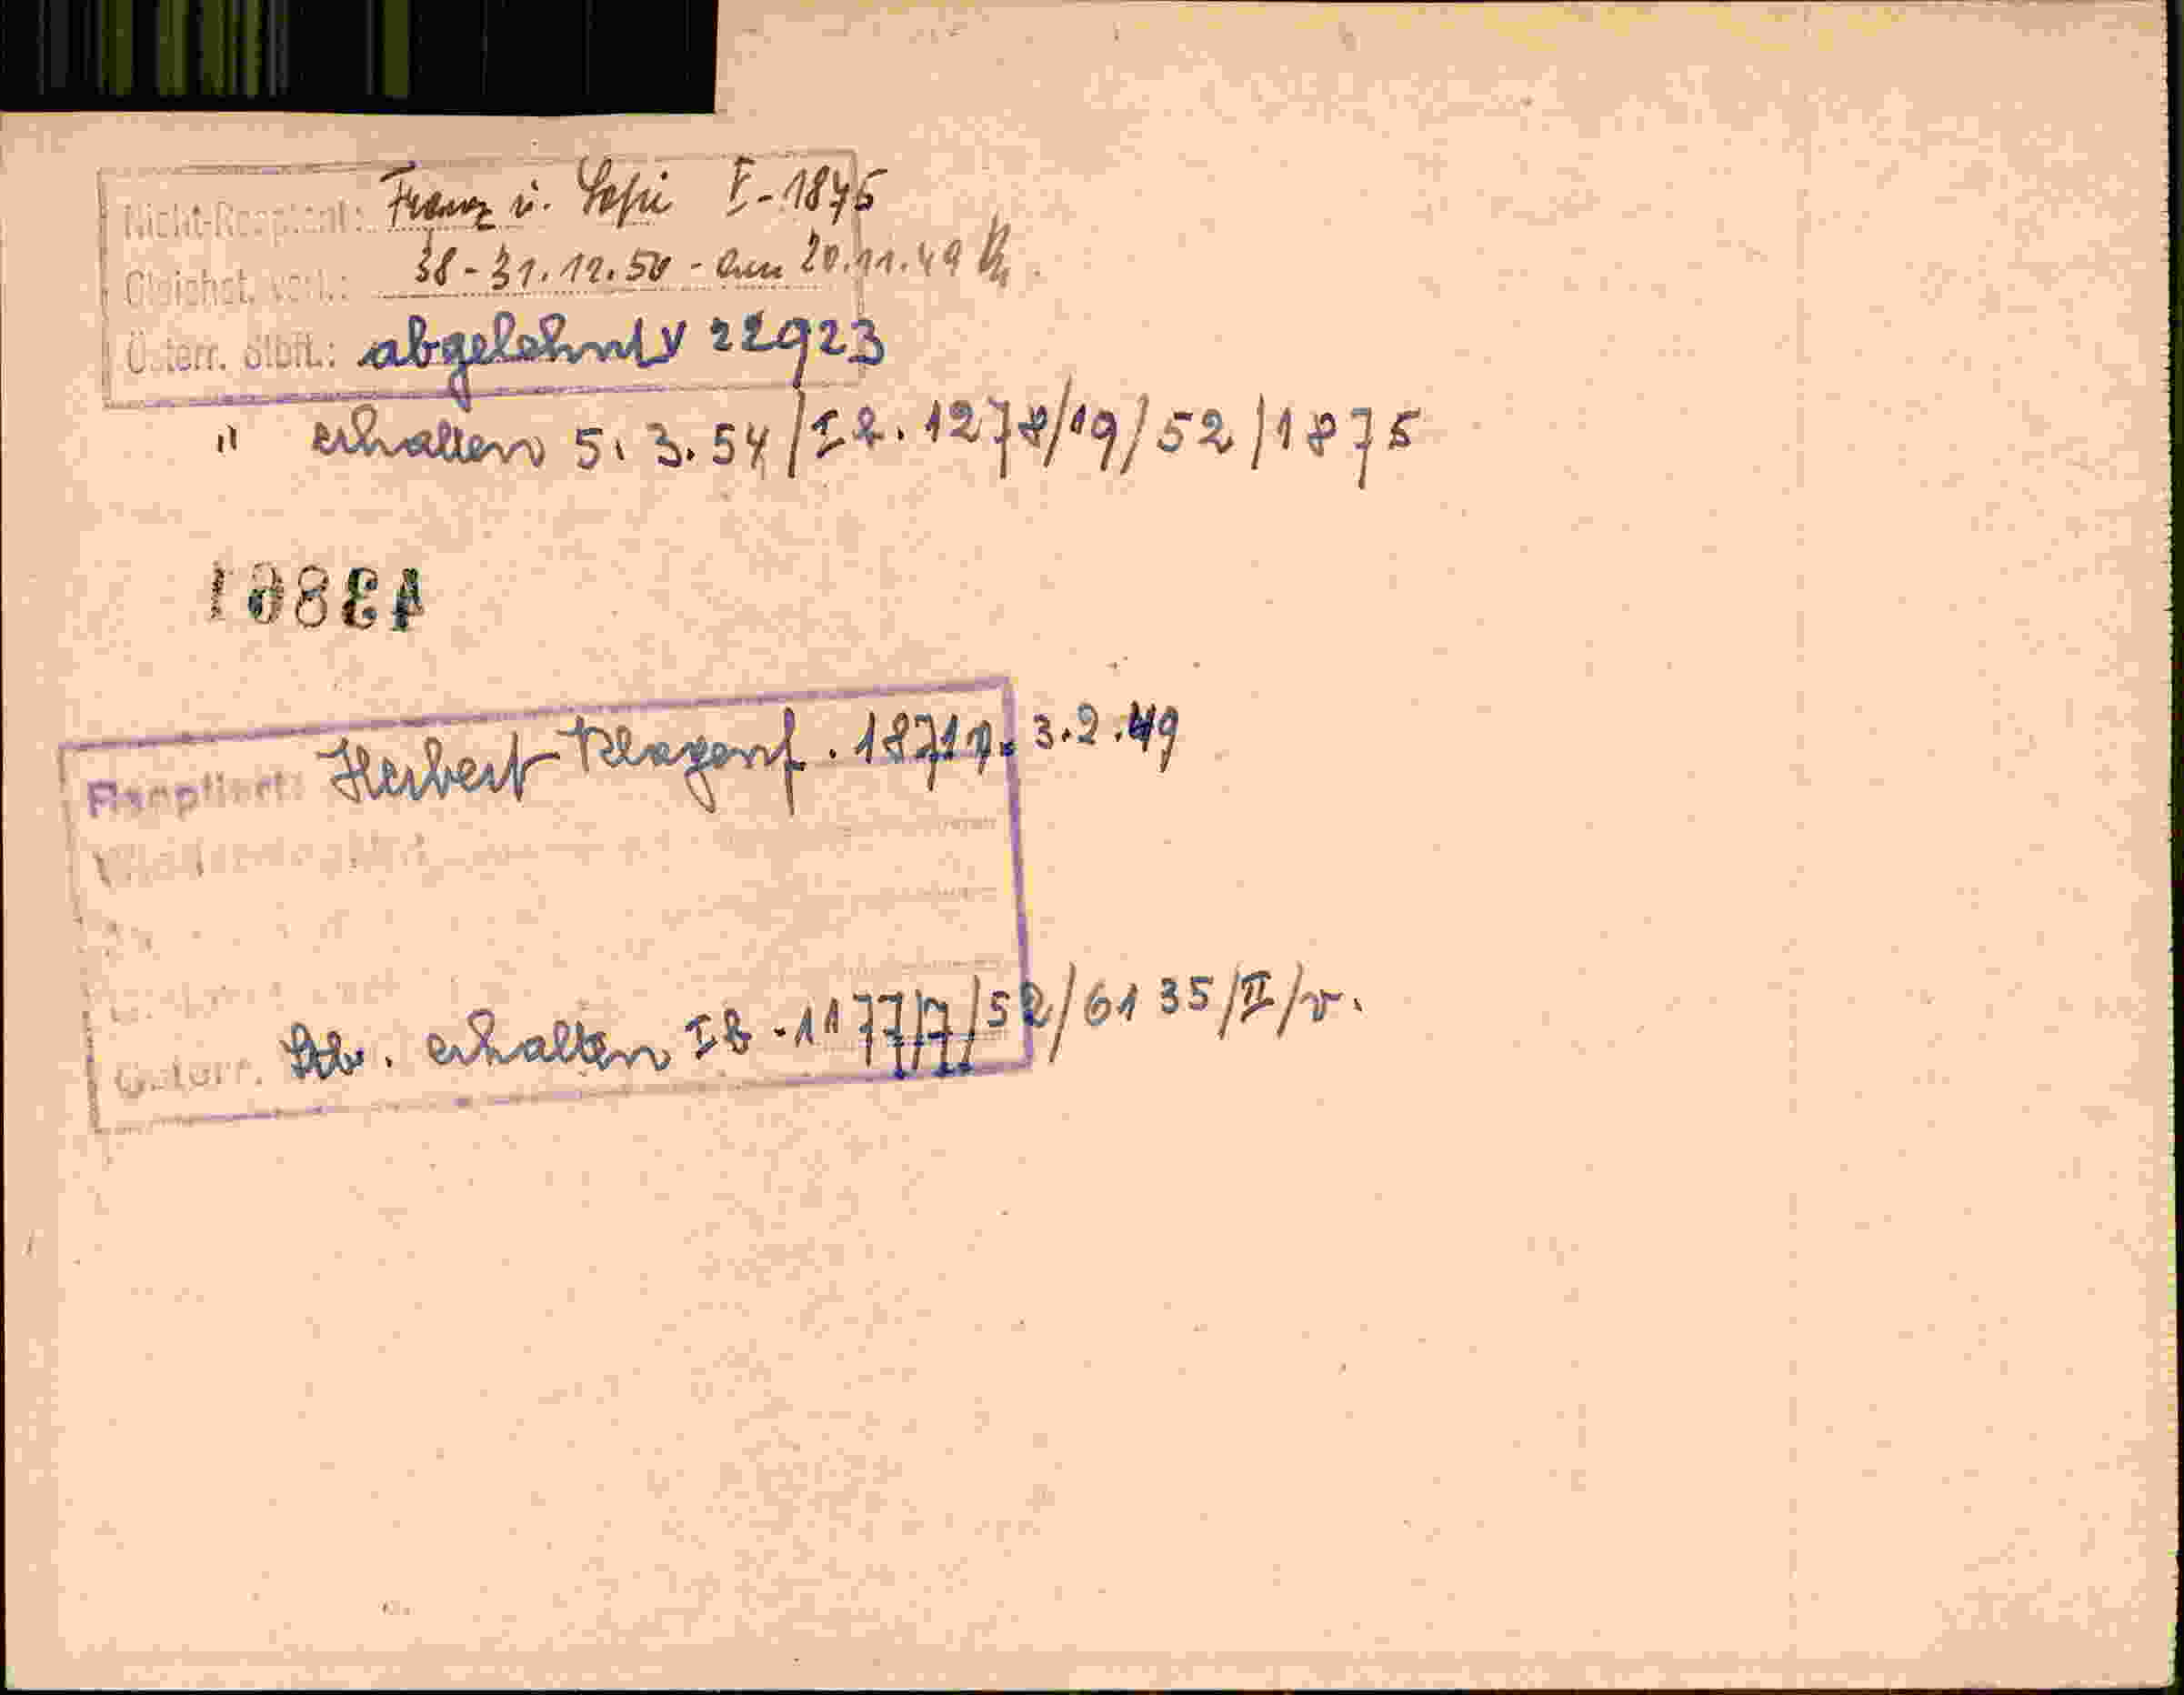 Nicht-Reoptant: Franz u. Sofie I-1875
Gleichst. verl.: 38-31.12.50 - am 20.11.49
Österr. Stbft.: abgelehnt V 22923
" erhalten 5.3.54/I2.1278/19/52/1875
43801
Reoptiert: Herbert Klagenf. 18719. 3.2.49
Österr. Stb. erhalten I8-1177/7/52/6135/II/v.